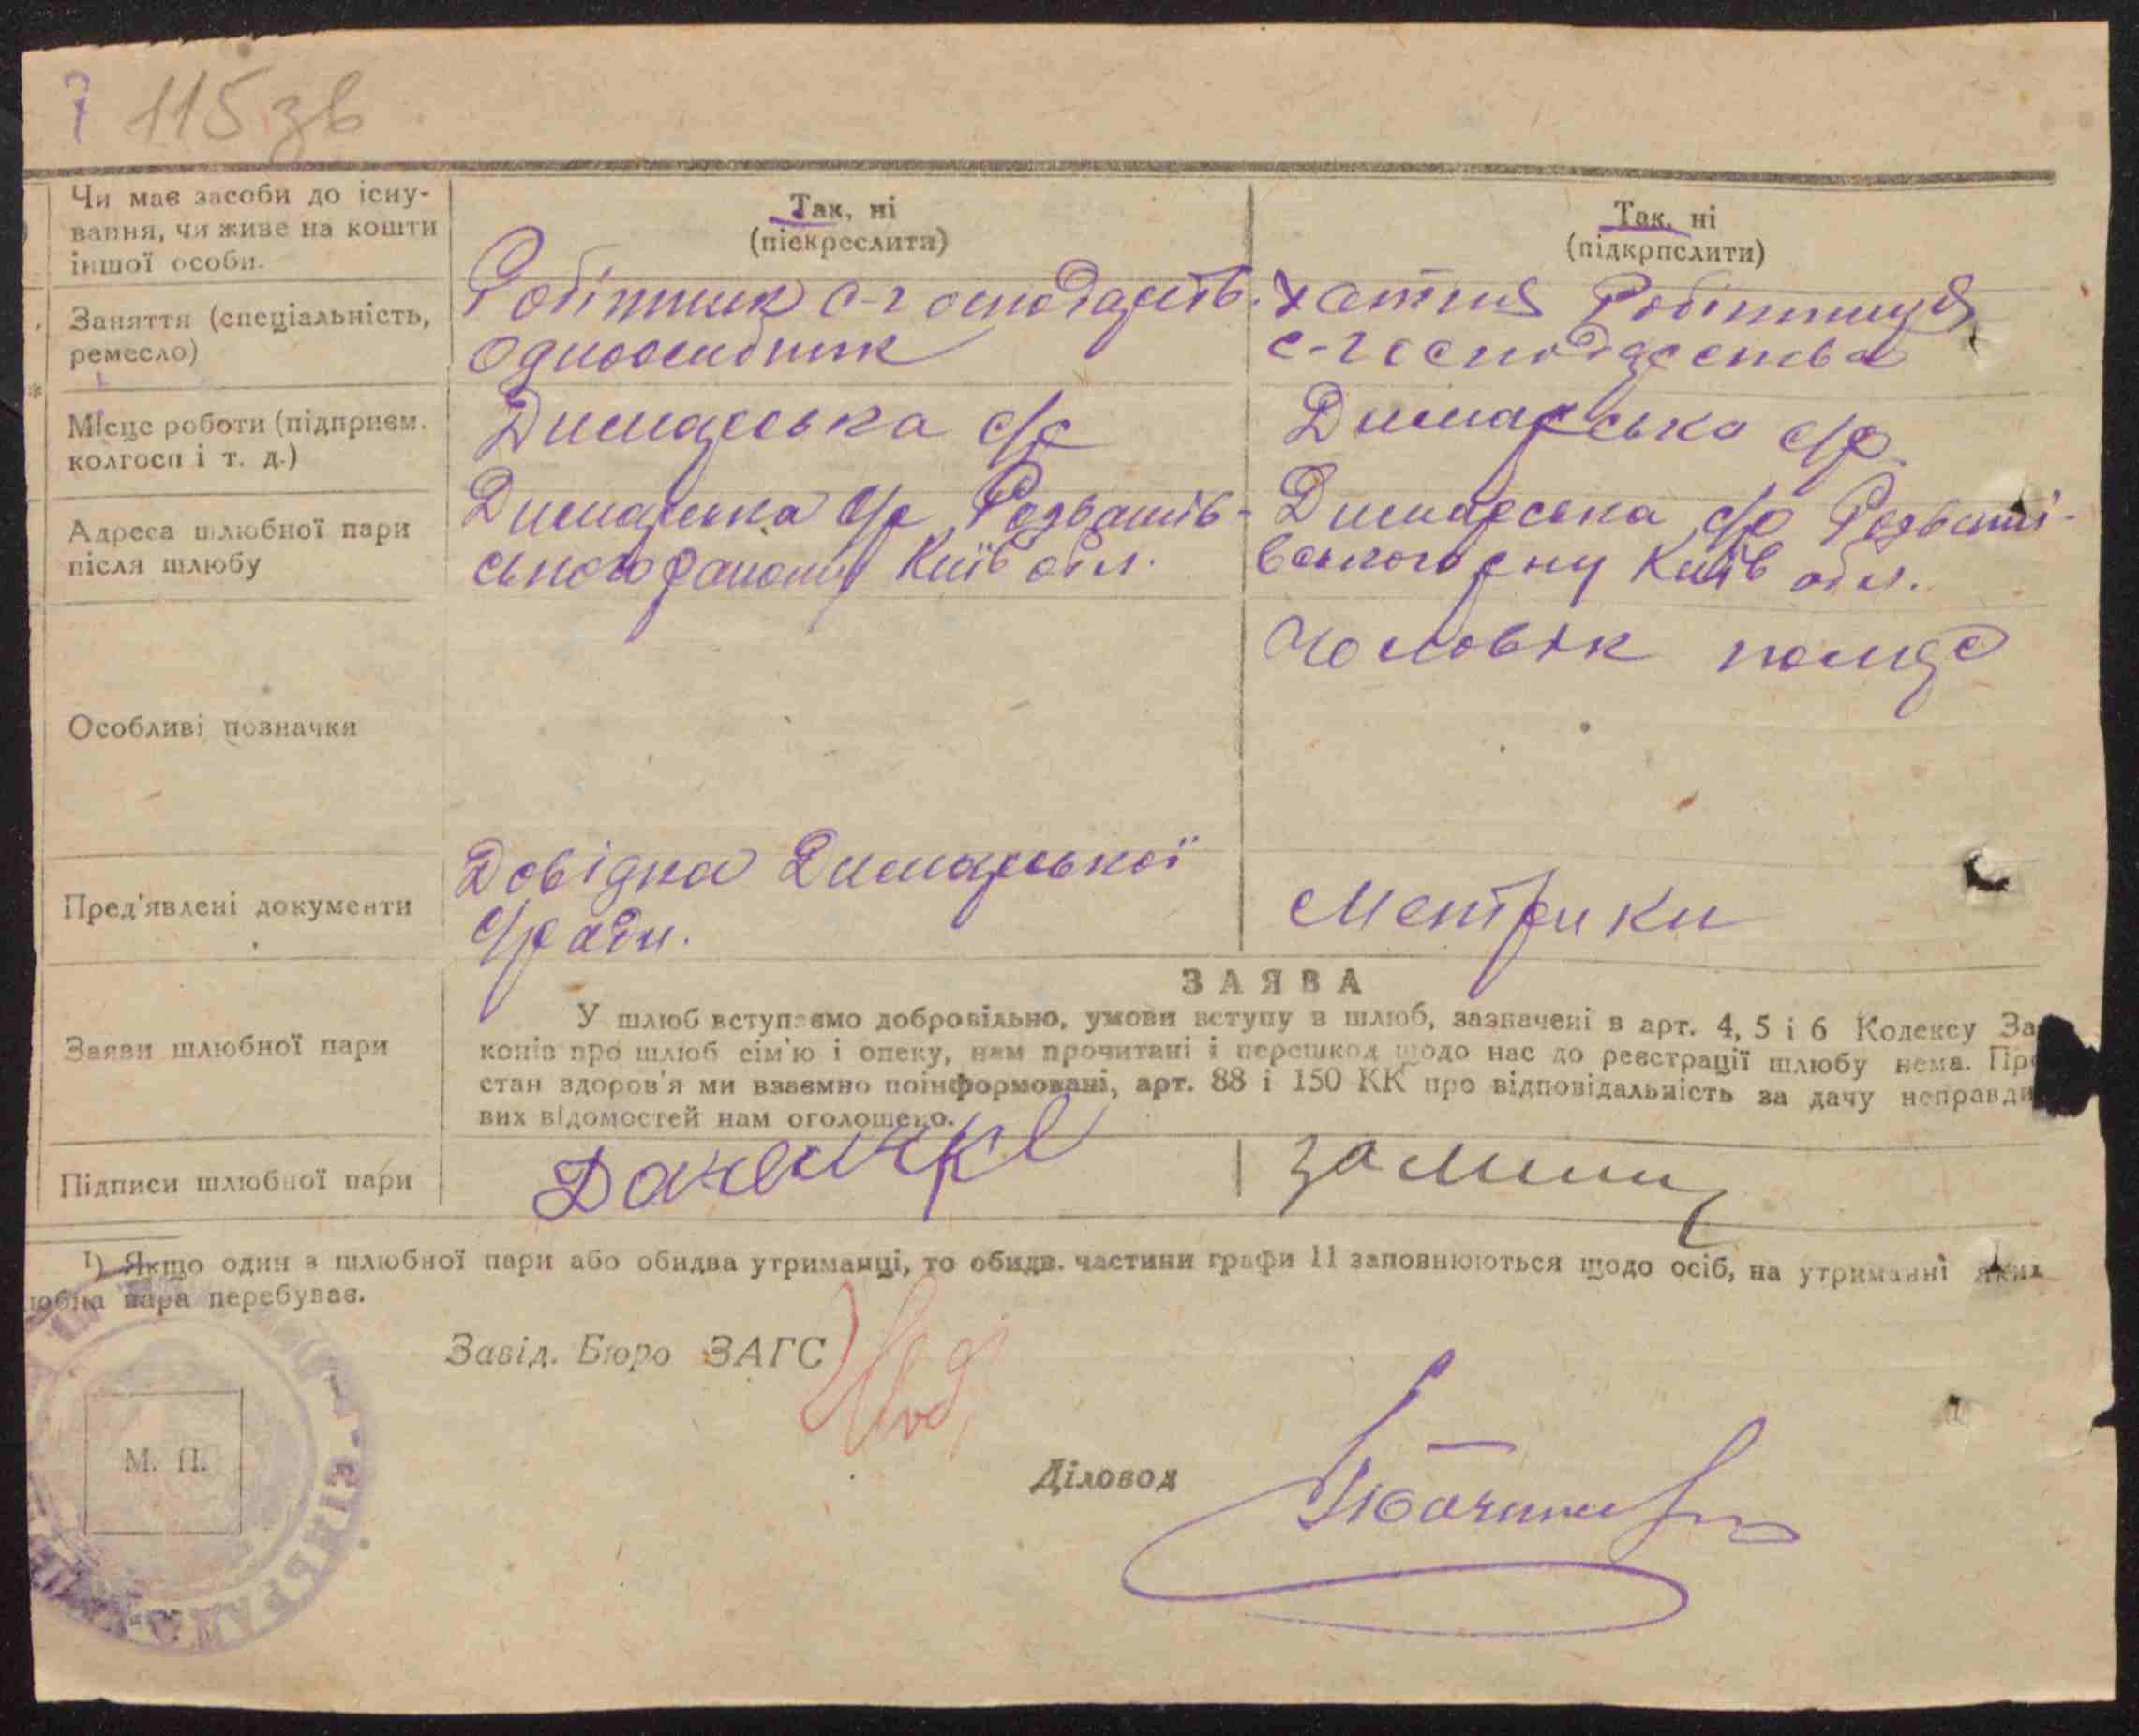 7 115 зв
Чи має засоби до існу-
вання, чи живе на кошти
іншої особи.
Так, ні
(піекреслити)
Так, ні
(підкрпслити)
Заняття (спеціальність,
ремесло)
Робітник с-господарств.
одноосибник
хатня Робітниця
с-господарства
Місце роботи (підприєм.
колгосп і т. д.)
Димарська с/р
Димарська с/р
Адреса шлюбної пари
після шлюбу
Димарська с/р Розважів-
ського району Київ обл.
Димарська с/р Розважі-
вського р-ну Київ обл.
Особливі позначки
Чоловік помер
Пред'явлені документи
Довідка Димарської
с/ради.
Метрики
Заяви шлюбної пари
ЗАЯВА
У шлюб вступаємо добровільно, умови вступу в шлюб, зазначені в арт. 4, 5 і 6 Кодексу За
конів про шлюб сім'ю і опеку, нам прочитані і перешкод щодо нас до реєстрації шлюбу нема. Про
стан здоров'я ми взаємно поінформовані, арт. 88 і 150 КК про відповідальність за дачу неправди
вих відомостей нам оголошено.
Підписи шлюбної пари
1) Якщо один з шлюбної пари або обидва утриманці, то обидв. частини графи 11 заповнюються щодо осіб, на утриманні яких
юбна пара перебуває.
Завід. Бюро ЗАГС
М. П.
Діловод